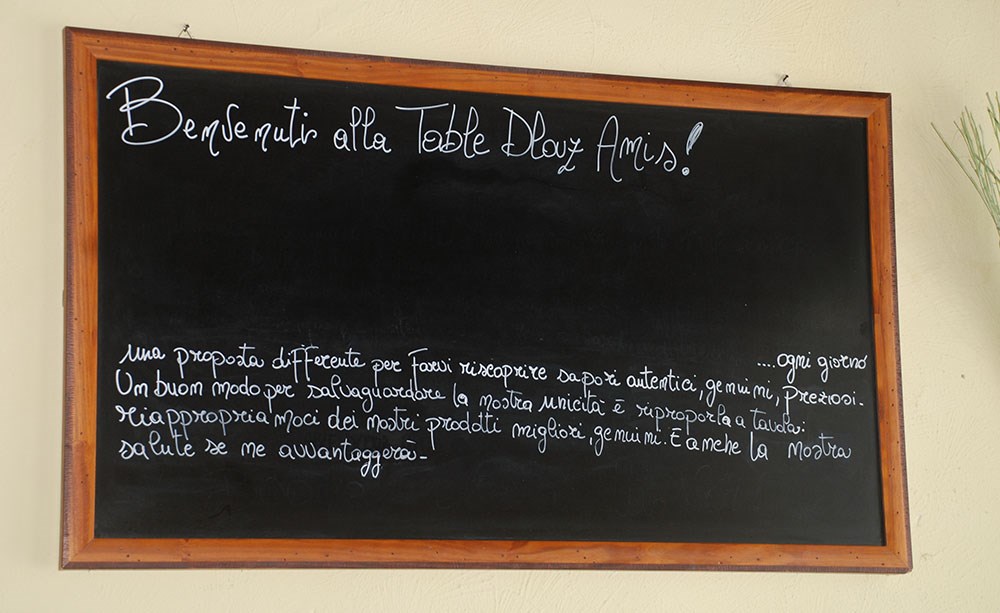 Benvenuti alla Table Dlouz Amis!
....ogni giorno
una proposta differente per farvi riscoprire sapori autentici, genuini, preziosi.
Un buon modo per salvaguardare la nostra unicità è riproporla a tavola:
riappropriamoci dei nostri prodotti migliori, genuini. E anche la nostra
salute se ne avvantaggerà-